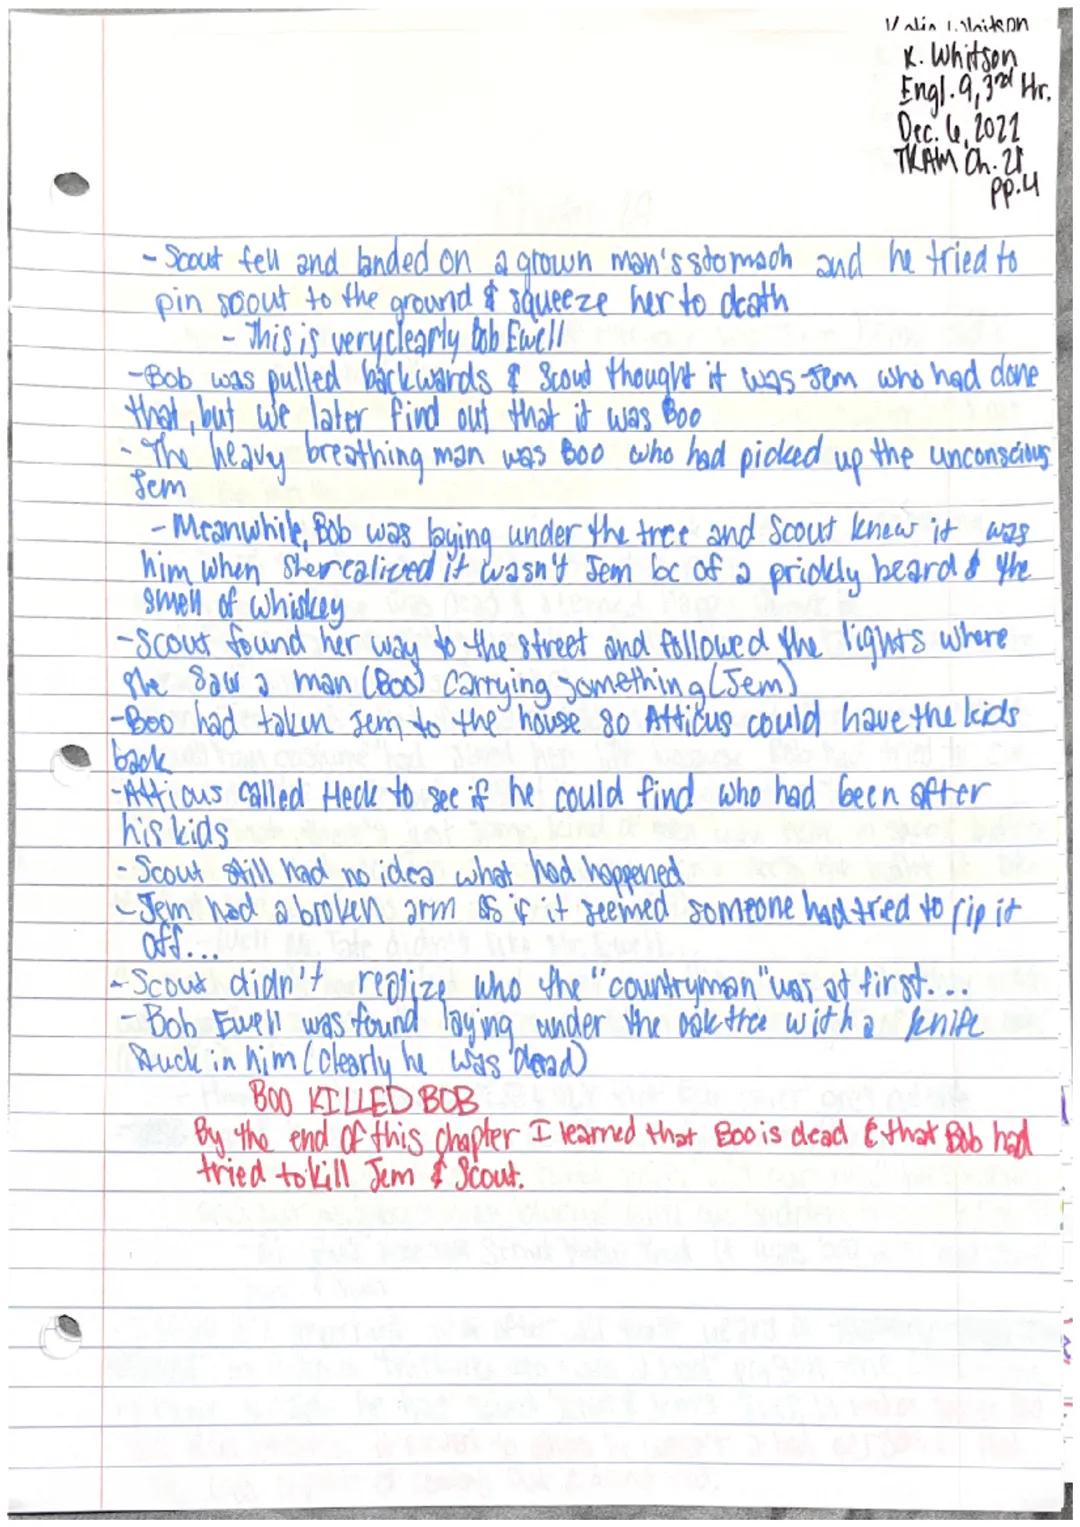 K. Whitson
Engl. 9, 3rd Hr.
Dec. 6, 2022
TKAM Ch. 28
pp. 4
- Scout fell and landed on a grown man's stomach and he tried to
pin scout to the ground & squeeze her to death
- This is very clearly Bob Ewell
- Bob was pulled backwards & Scout thought it was Jem who had done
that, but we later find out that it was Boo
- The heavy breathing man was Boo who had picked up the unconscious
Jem
- Meanwhile, Bob was laying under the tree and Scout knew it was
him when she realized it wasn't Jem bc of a prickly beard & the
smell of whiskey
- Scout found her way to the street and followed the lights where
she saw a man (Boo) carrying something (Jem)
- Boo had taken Jem to the house so Atticus could have the kids
back
- Atticus called Heck to see if he could find who had been after
his kids
- Scout still had no idea what had happened.
- Jem had a broken arm as if it seemed someone had tried to rip it
off...
- Scout didn't realize who the "countryman" was at first...
- Bob Ewell was found laying under the oak tree with a knife
stuck in him (clearly he was dead)
BOO KILLED BOB
By the end of this chapter I learned that Boo is dead & that Bob had
tried to kill Jem & Scout.